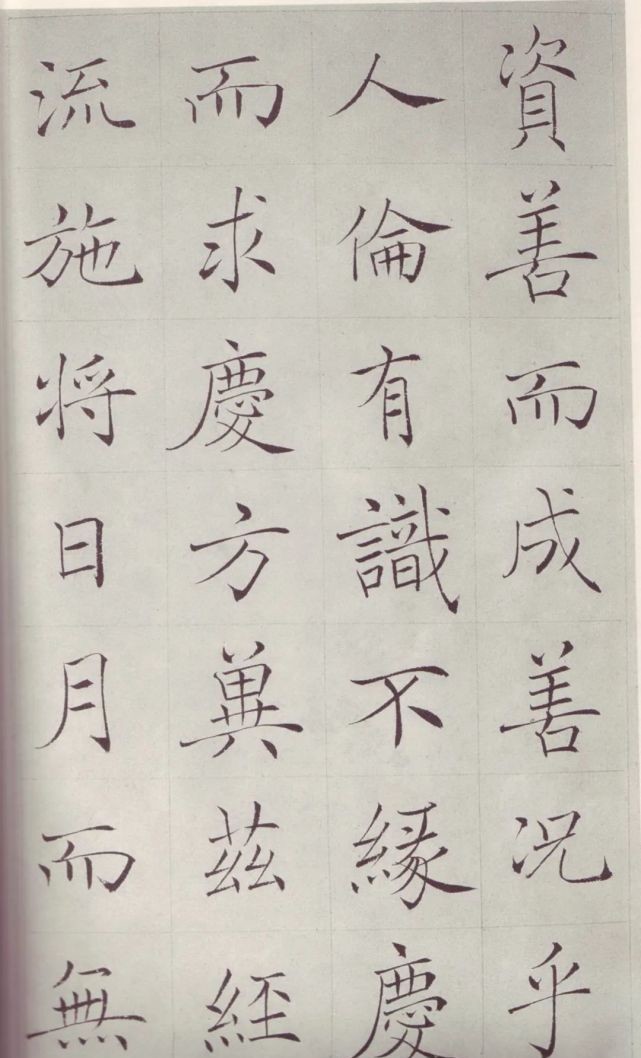 資善而成善况乎
人倫有識不縁慶
而求慶方兾茲經
流施将日月而無